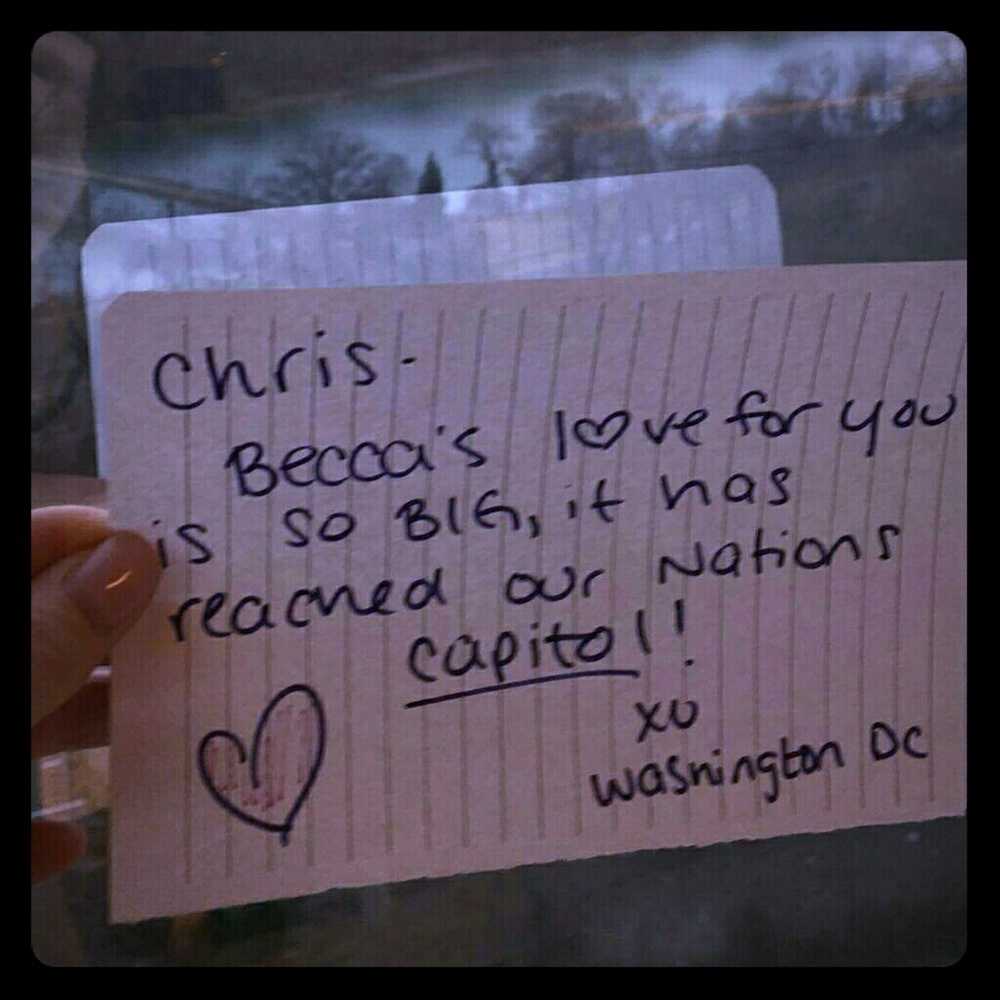 Chris-
Becca's love for you
is so BIG, it has
reached our Nations
capitol!
xo
Washington DC